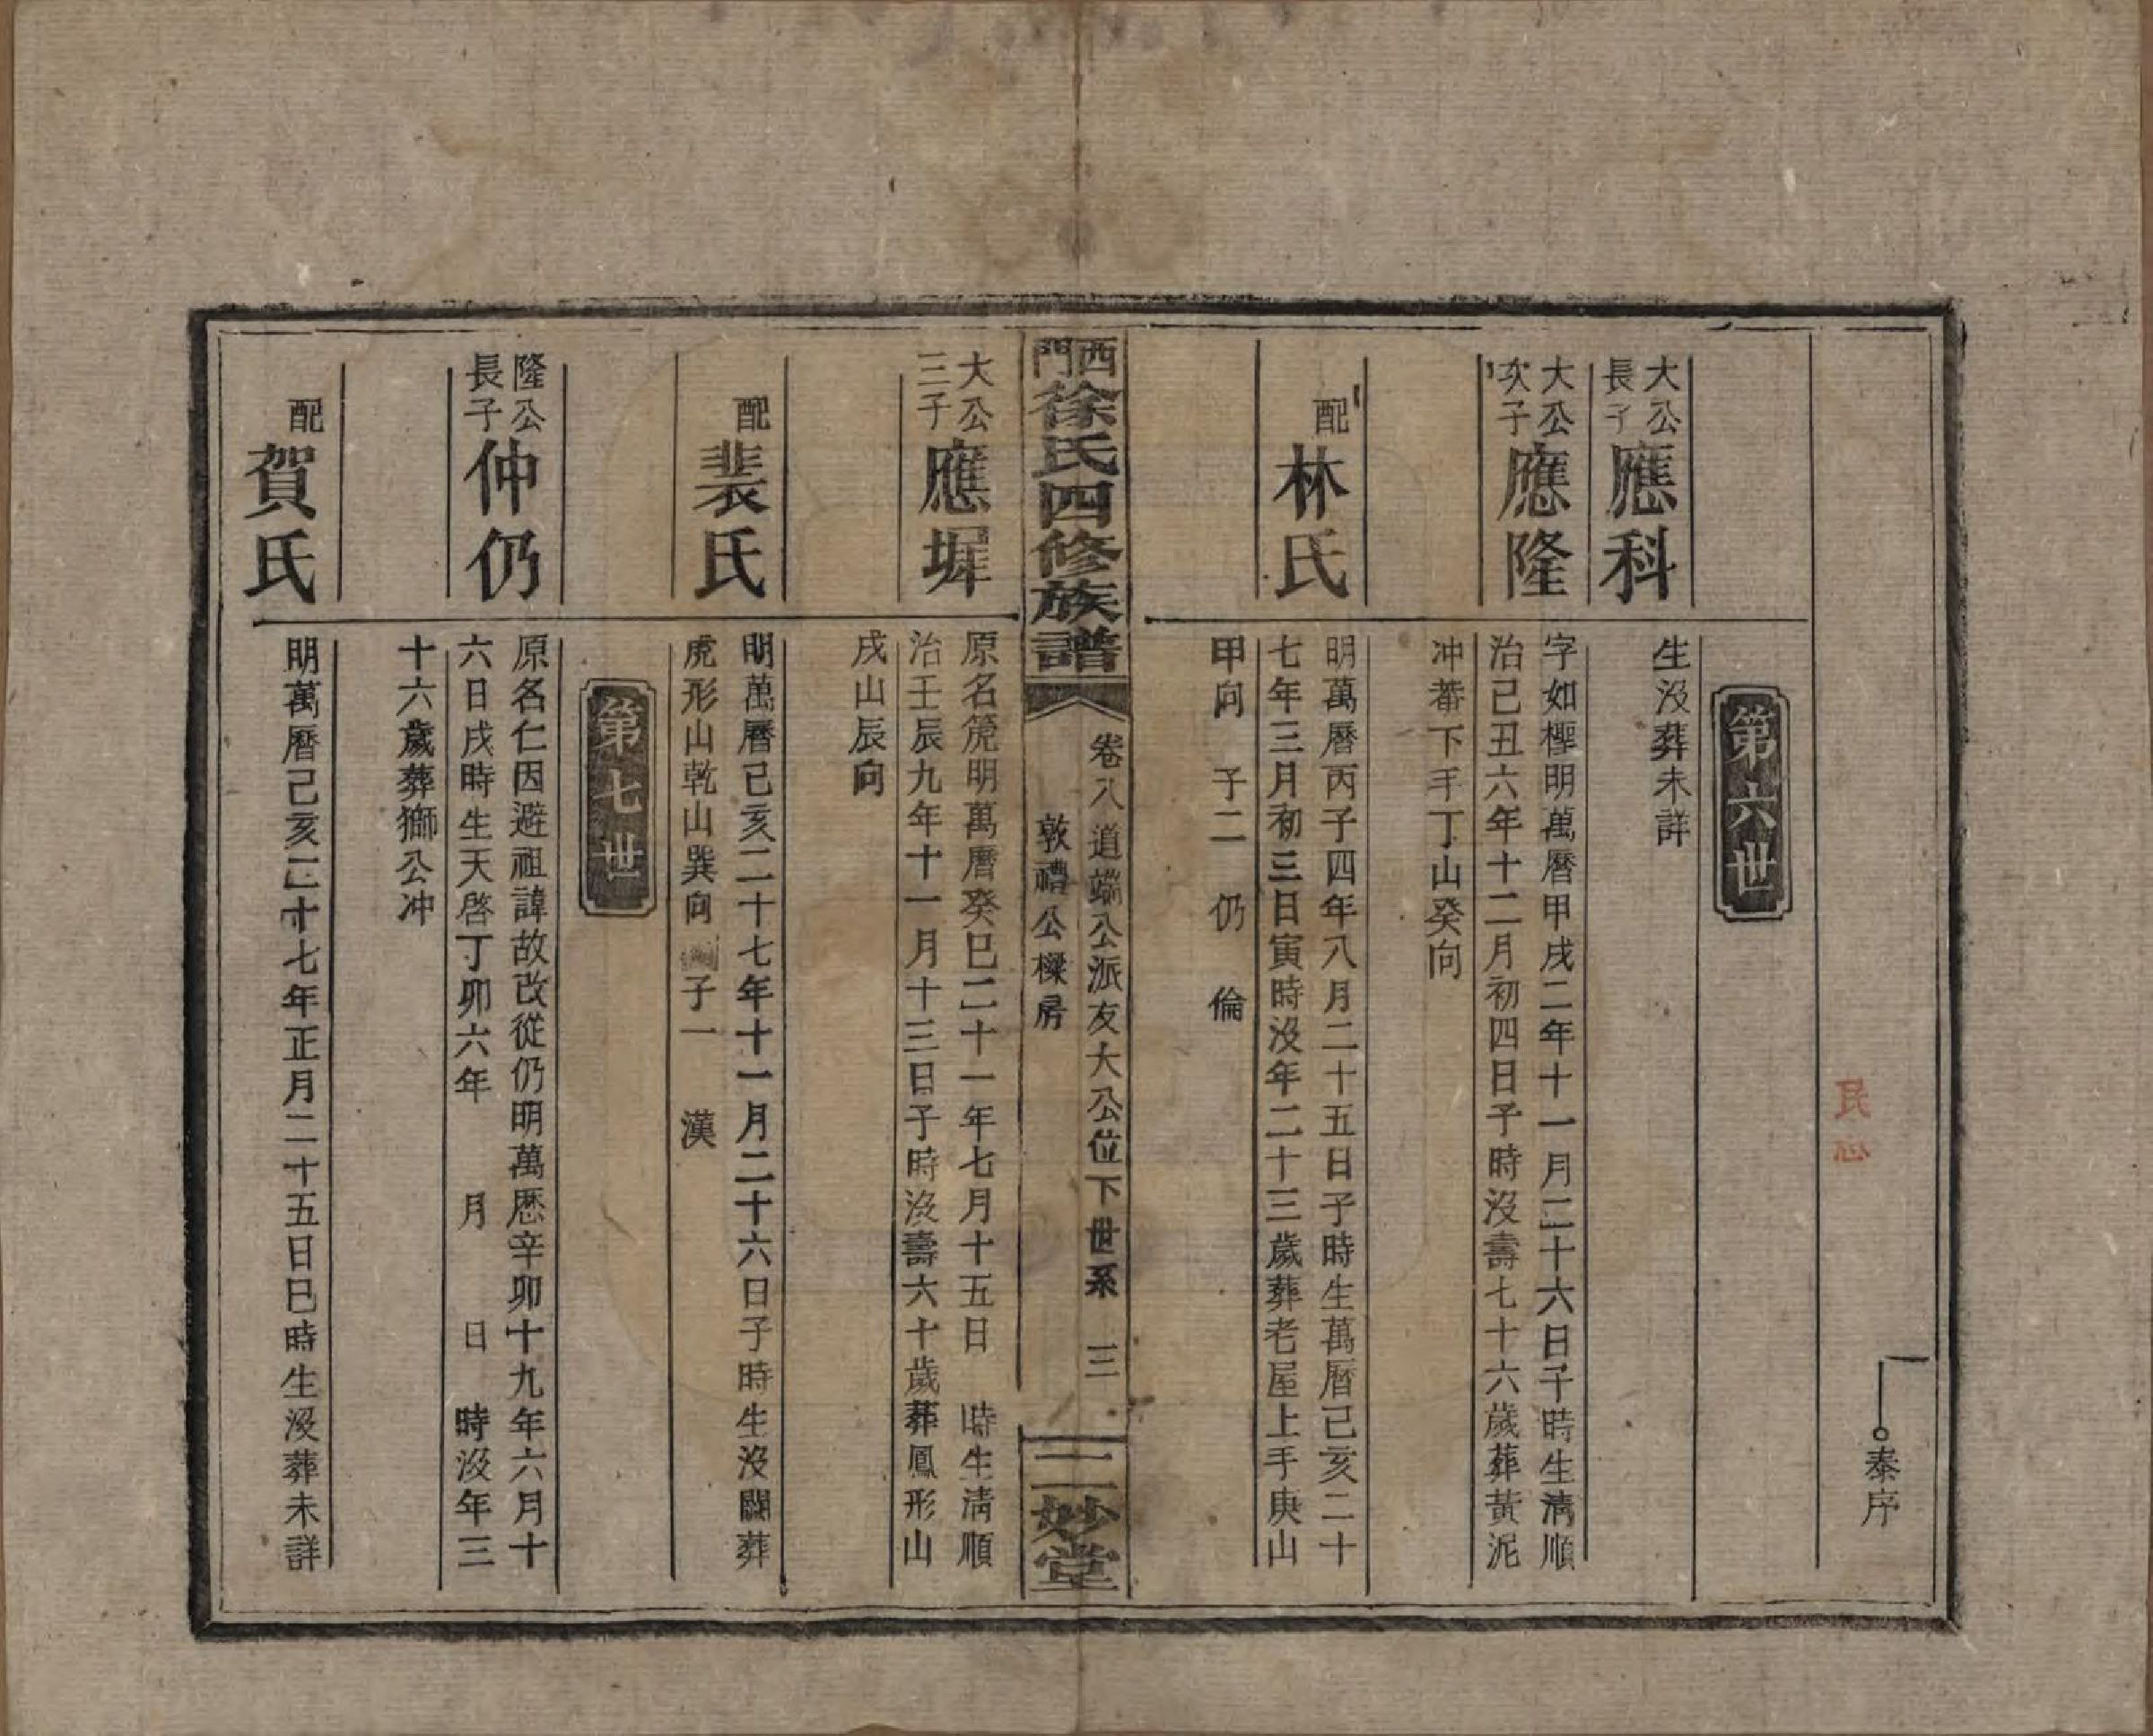 泰序
第六世
大公長子
應科
生沒葬未詳
大公次子
應隆
字如檉明萬曆甲戌二年十一月二十六日子時生淸順
治己丑六年十二月初四日子時沒壽七十六歲葬黃泥
冲蕃下手丁山癸向
配林氏
明萬曆丙子四年八月二十五日子時生萬曆己亥二十
七年三月初三日寅時沒年二十三歲葬老屋上手庚山
甲向 子二 仍 倫
西門徐氏四修族譜
卷八 道端公派友大公位下世系 三
敦禮公樑房
二妙堂
大公三子
應墀
原名箎明萬曆癸巳二十一年七月十五日 時生淸順
治壬辰九年十一月十三日子時沒壽六十歲葬鳳形山
戌山辰向
配裴氏
明萬曆己亥二十七年十一月二十六日子時生沒闕葬
虎形山乾山巽向 子一 漢
第七世
隆公長子
仲仍
原名仁因避祖諱故改從仍明萬歷辛卯十九年六月十
六日戌時生天啓丁卯六年 月 日 時沒年三
十六歲葬獅公冲
配賀氏
明萬曆己亥二十七年正月二十五日巳時生沒葬未詳